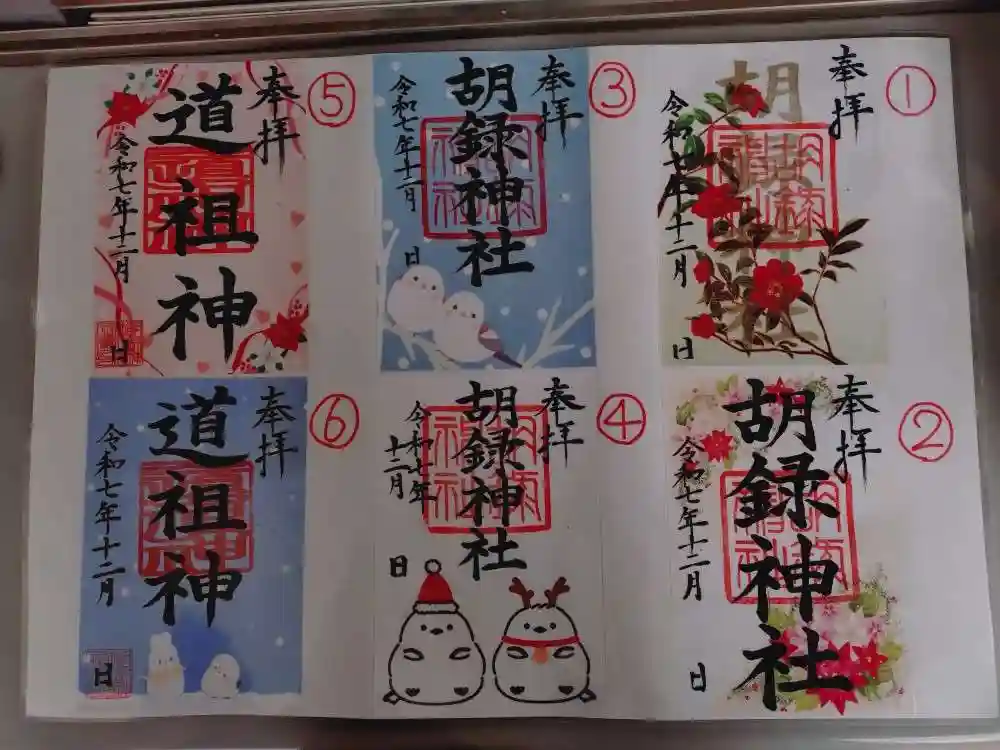 ①
奉拝
胡録神社
令和七年十二月
日
②
奉拝
胡録神社
令和七年十二月
日
③
奉拝
胡録神社
令和七年十二月
日
④
奉拝
胡録神社
令和七年
十二月
日
⑤
奉拝
道祖神
令和七年十二月
日
⑥
奉拝
道祖神
令和七年十二月
日